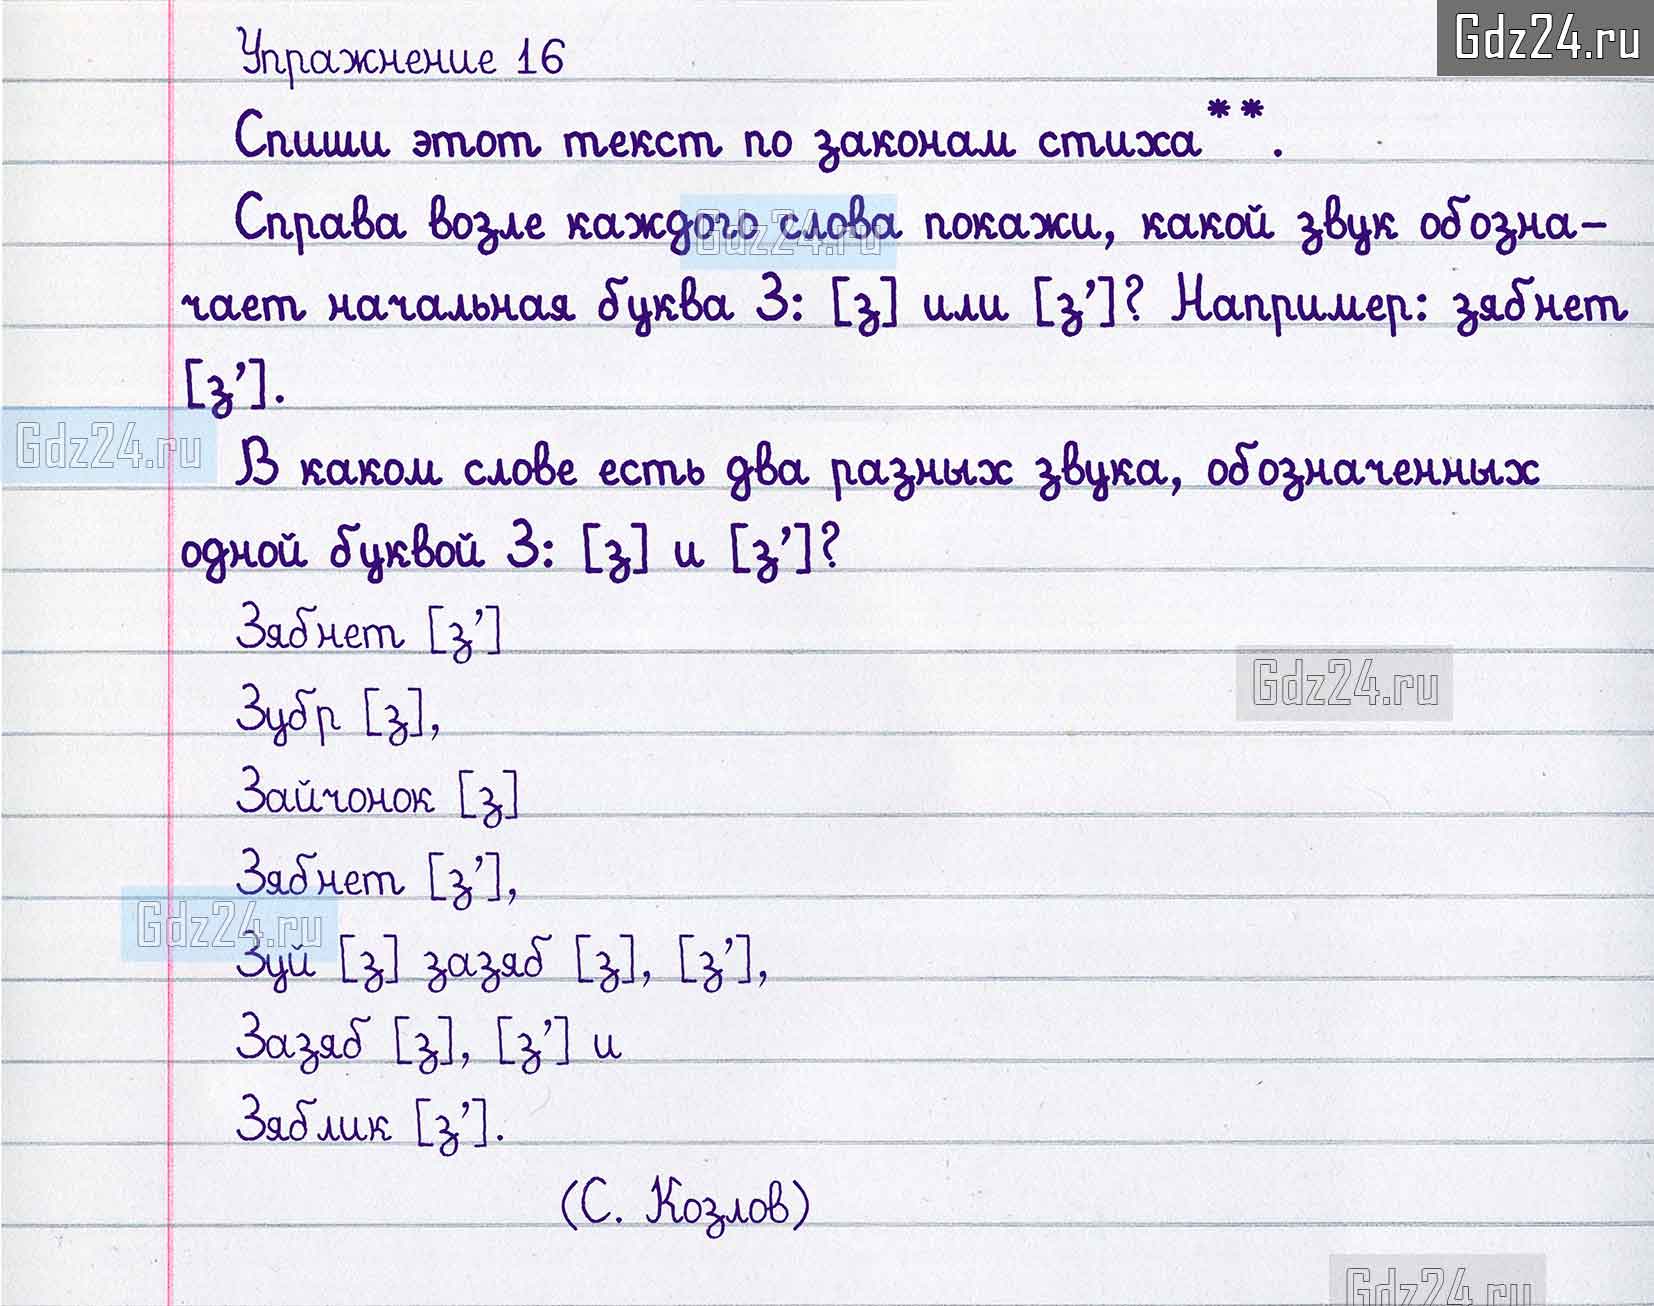 Gdz24.ru
Упражнение 16
Спиши этот текст по законам стиха**.
Справа возле каждого слова покажи, какой звук обозна-
Gdz24.ru
чает начальная буква З: [з] или [з’]? Например: зябнет
[з’].
Gdz24.ru
В каком слове есть два разных звука, обозначенных
одной буквой З: [з] и [з’]?
Зябнет [з’]
Gdz24.ru
Зубр [з],
Зайчонок [з]
Зябнет [з’],
Gdz24.ru
Зуй [з] зазяб [з], [з’],
Зазяб [з], [з’] и
Зяблик [з’].
(С. Козлов)
Gdz24.ru